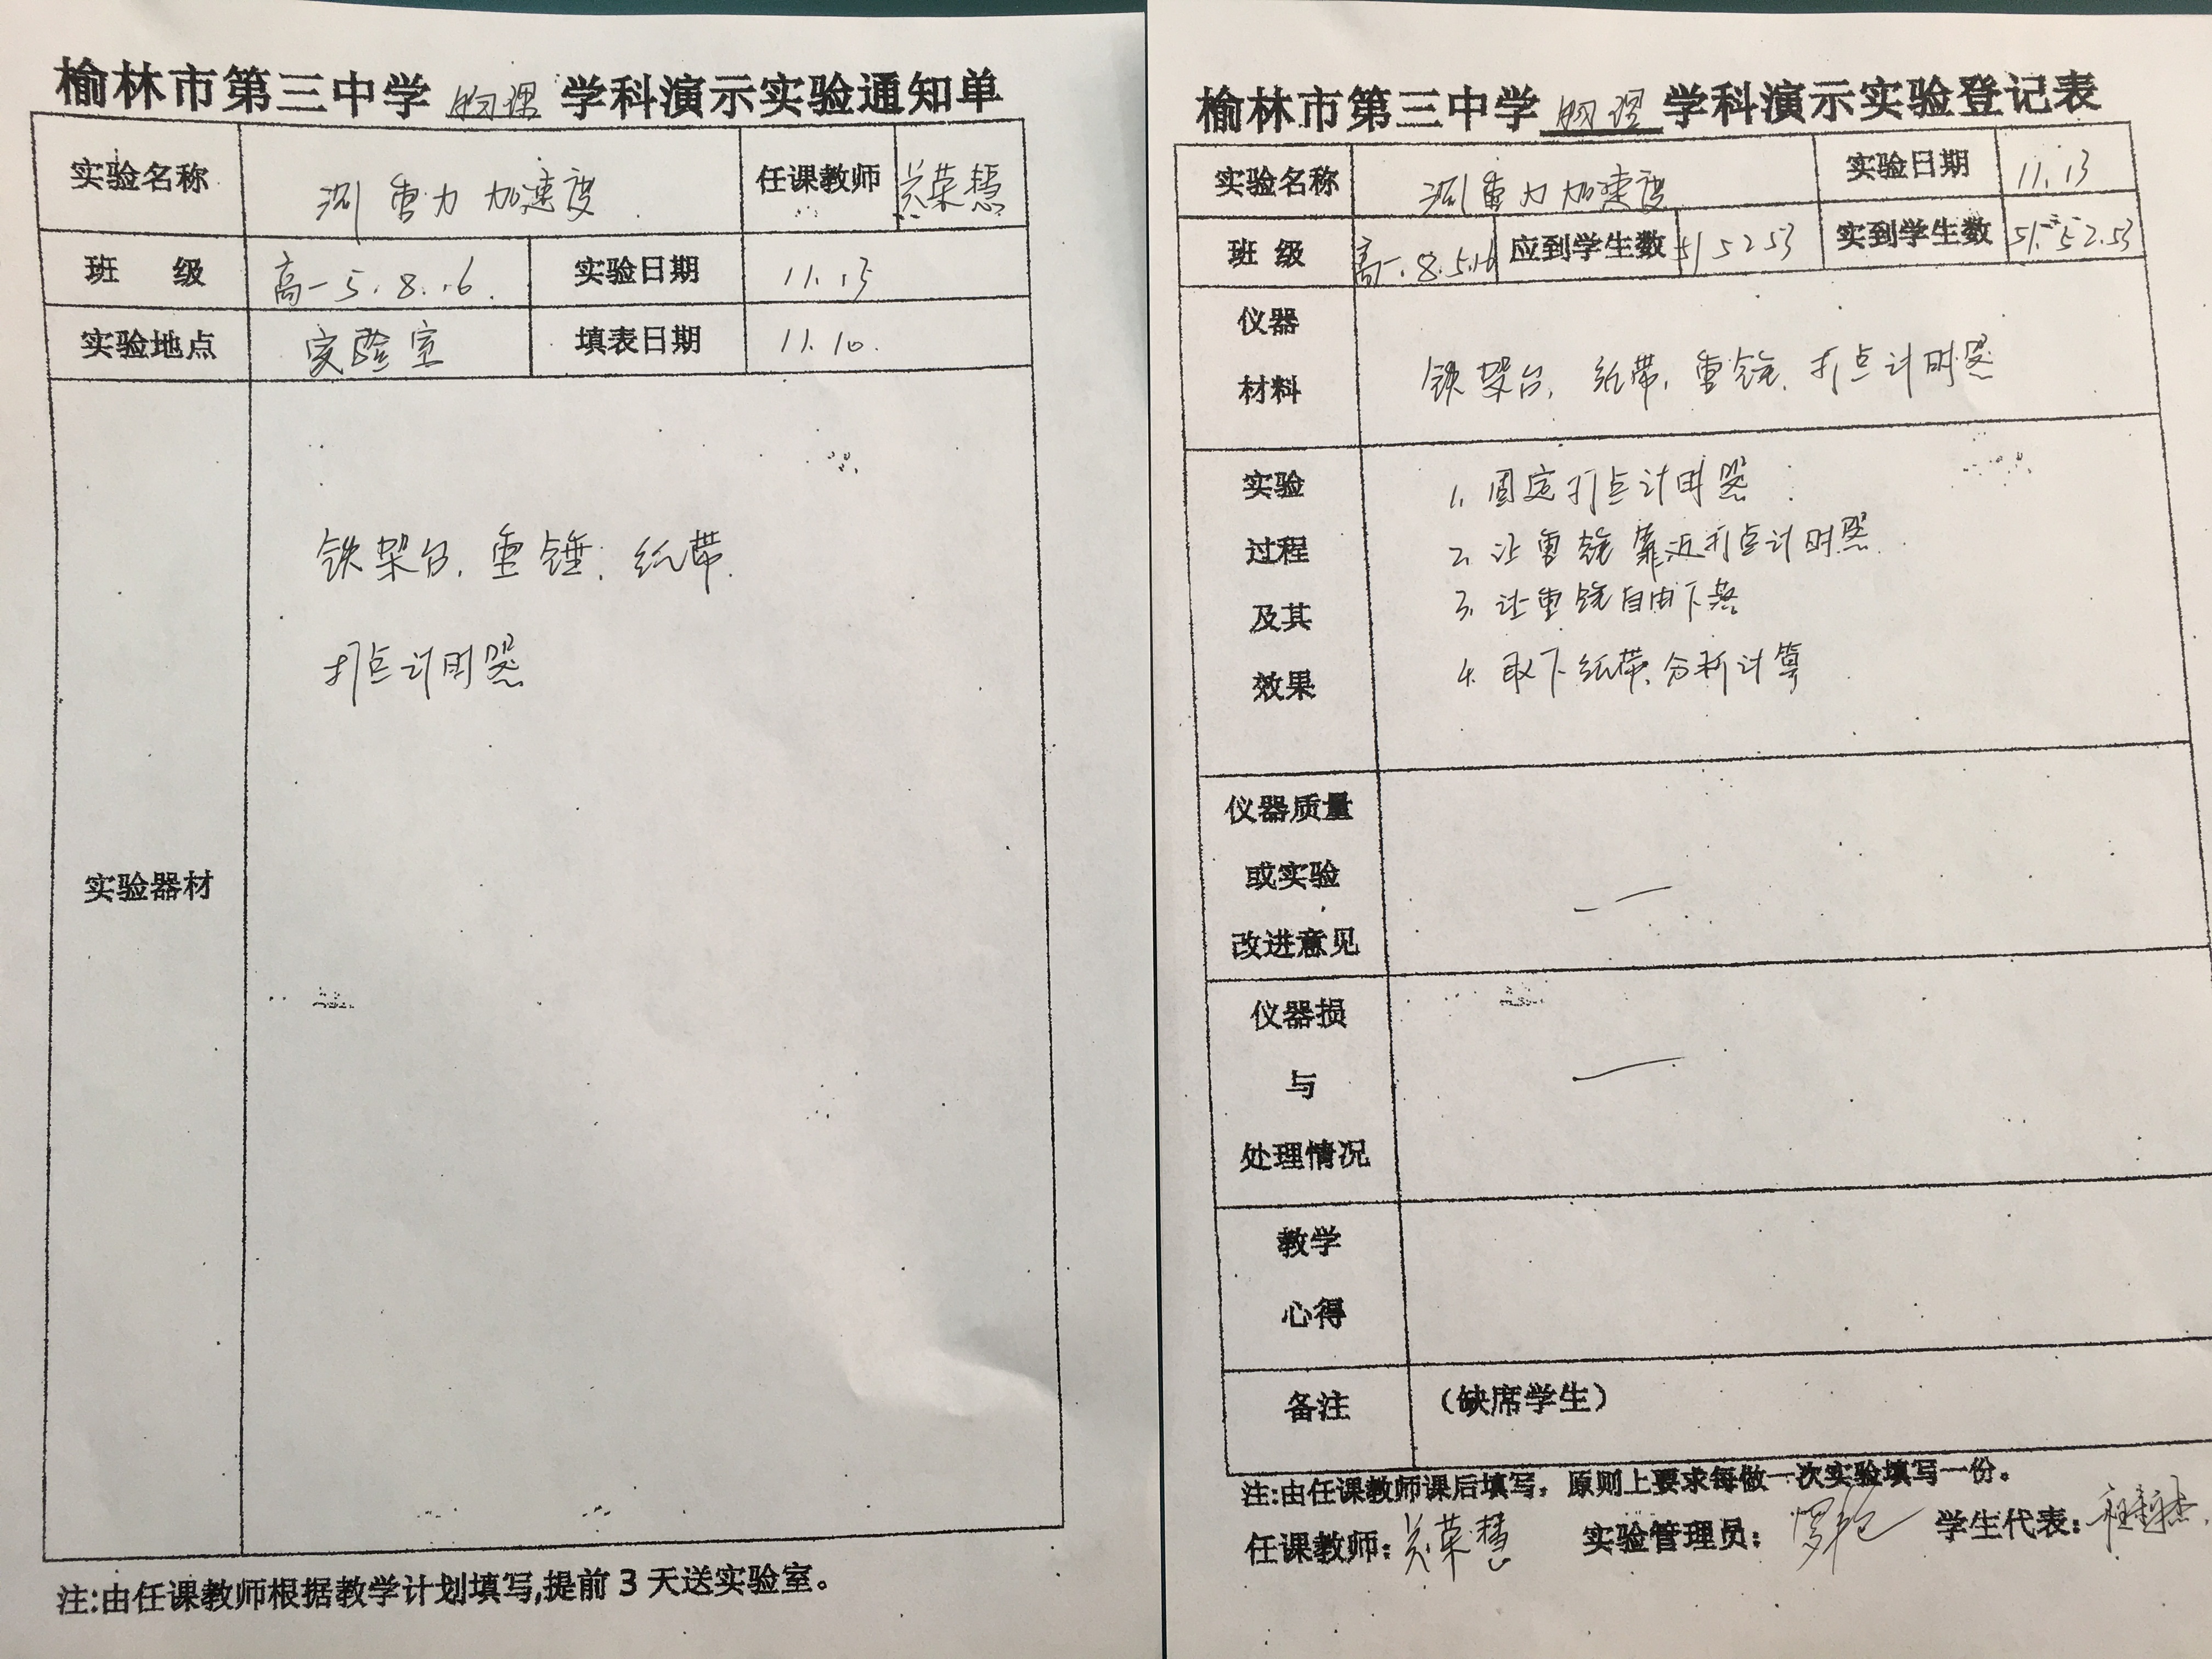 榆林市第三中学 物理 学科演示实验通知单
实验名称 测重力加速度 任课教师 荣慧
班 级 高一5.8.16. 实验日期 11.13
实验地点 实验室 填表日期 11.10.
实验器材
铁架台. 重锤. 纸带.
打点计时器
注:由任课教师根据教学计划填写,提前3天送实验室。
榆林市第三中学 物理 学科演示实验登记表
实验名称 测重力加速度 实验日期 11.13
班 级 高一.8.5.16 应到学生数 51 52 53 实到学生数 51.52.53
仪器
材料
铁架台. 纸带. 重锤. 打点计时器
实验
过程
及其
效果
1. 固定打点计时器
2. 让重锤靠近打点计时器.
3. 让重锤自由下落
4. 取下纸带.分析计算
仪器质量
或实验
改进意见
仪器损
与
处理情况
教学
心得
备注 (缺席学生)
注:由任课教师课后填写，原则上要求每做一次实验填写一份。
任课教师: 荣慧 实验管理员: 学生代表: